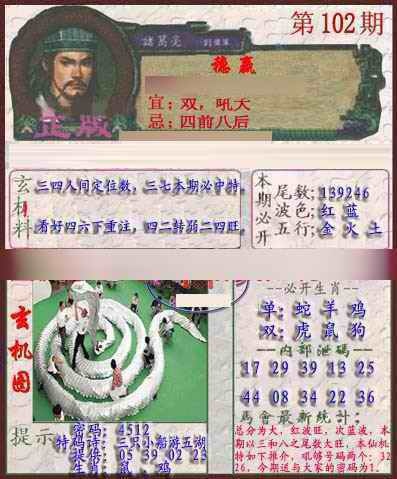 第102期
諸葛亮
劉伯溫
穩赢
宜：双，吼大
忌：四前八后
正版
玄机料
三四人间定位数，三七本期必中特。
看好四六下重注，四二转弱二四旺。
本期必开
尾数：139246
波色：红 蓝
五行：金 火 土
玄机图
--必开生肖--
单：蛇 羊 鸡
双：虎 鼠 狗
--内部泄码--
17 29 39 13 25
44 08 34 22 36
馬會最新統計：
总分为大，红波旺，次蓝波，本
期以三和八之尾数大旺，本仙机
特如下推介，吼够号码两个：32
26，今期送与大家的密码为1.
提示
密码：4512
特码诗：三只小船游五湖
提供：05 39 02 23
生肖：鼠、鸡